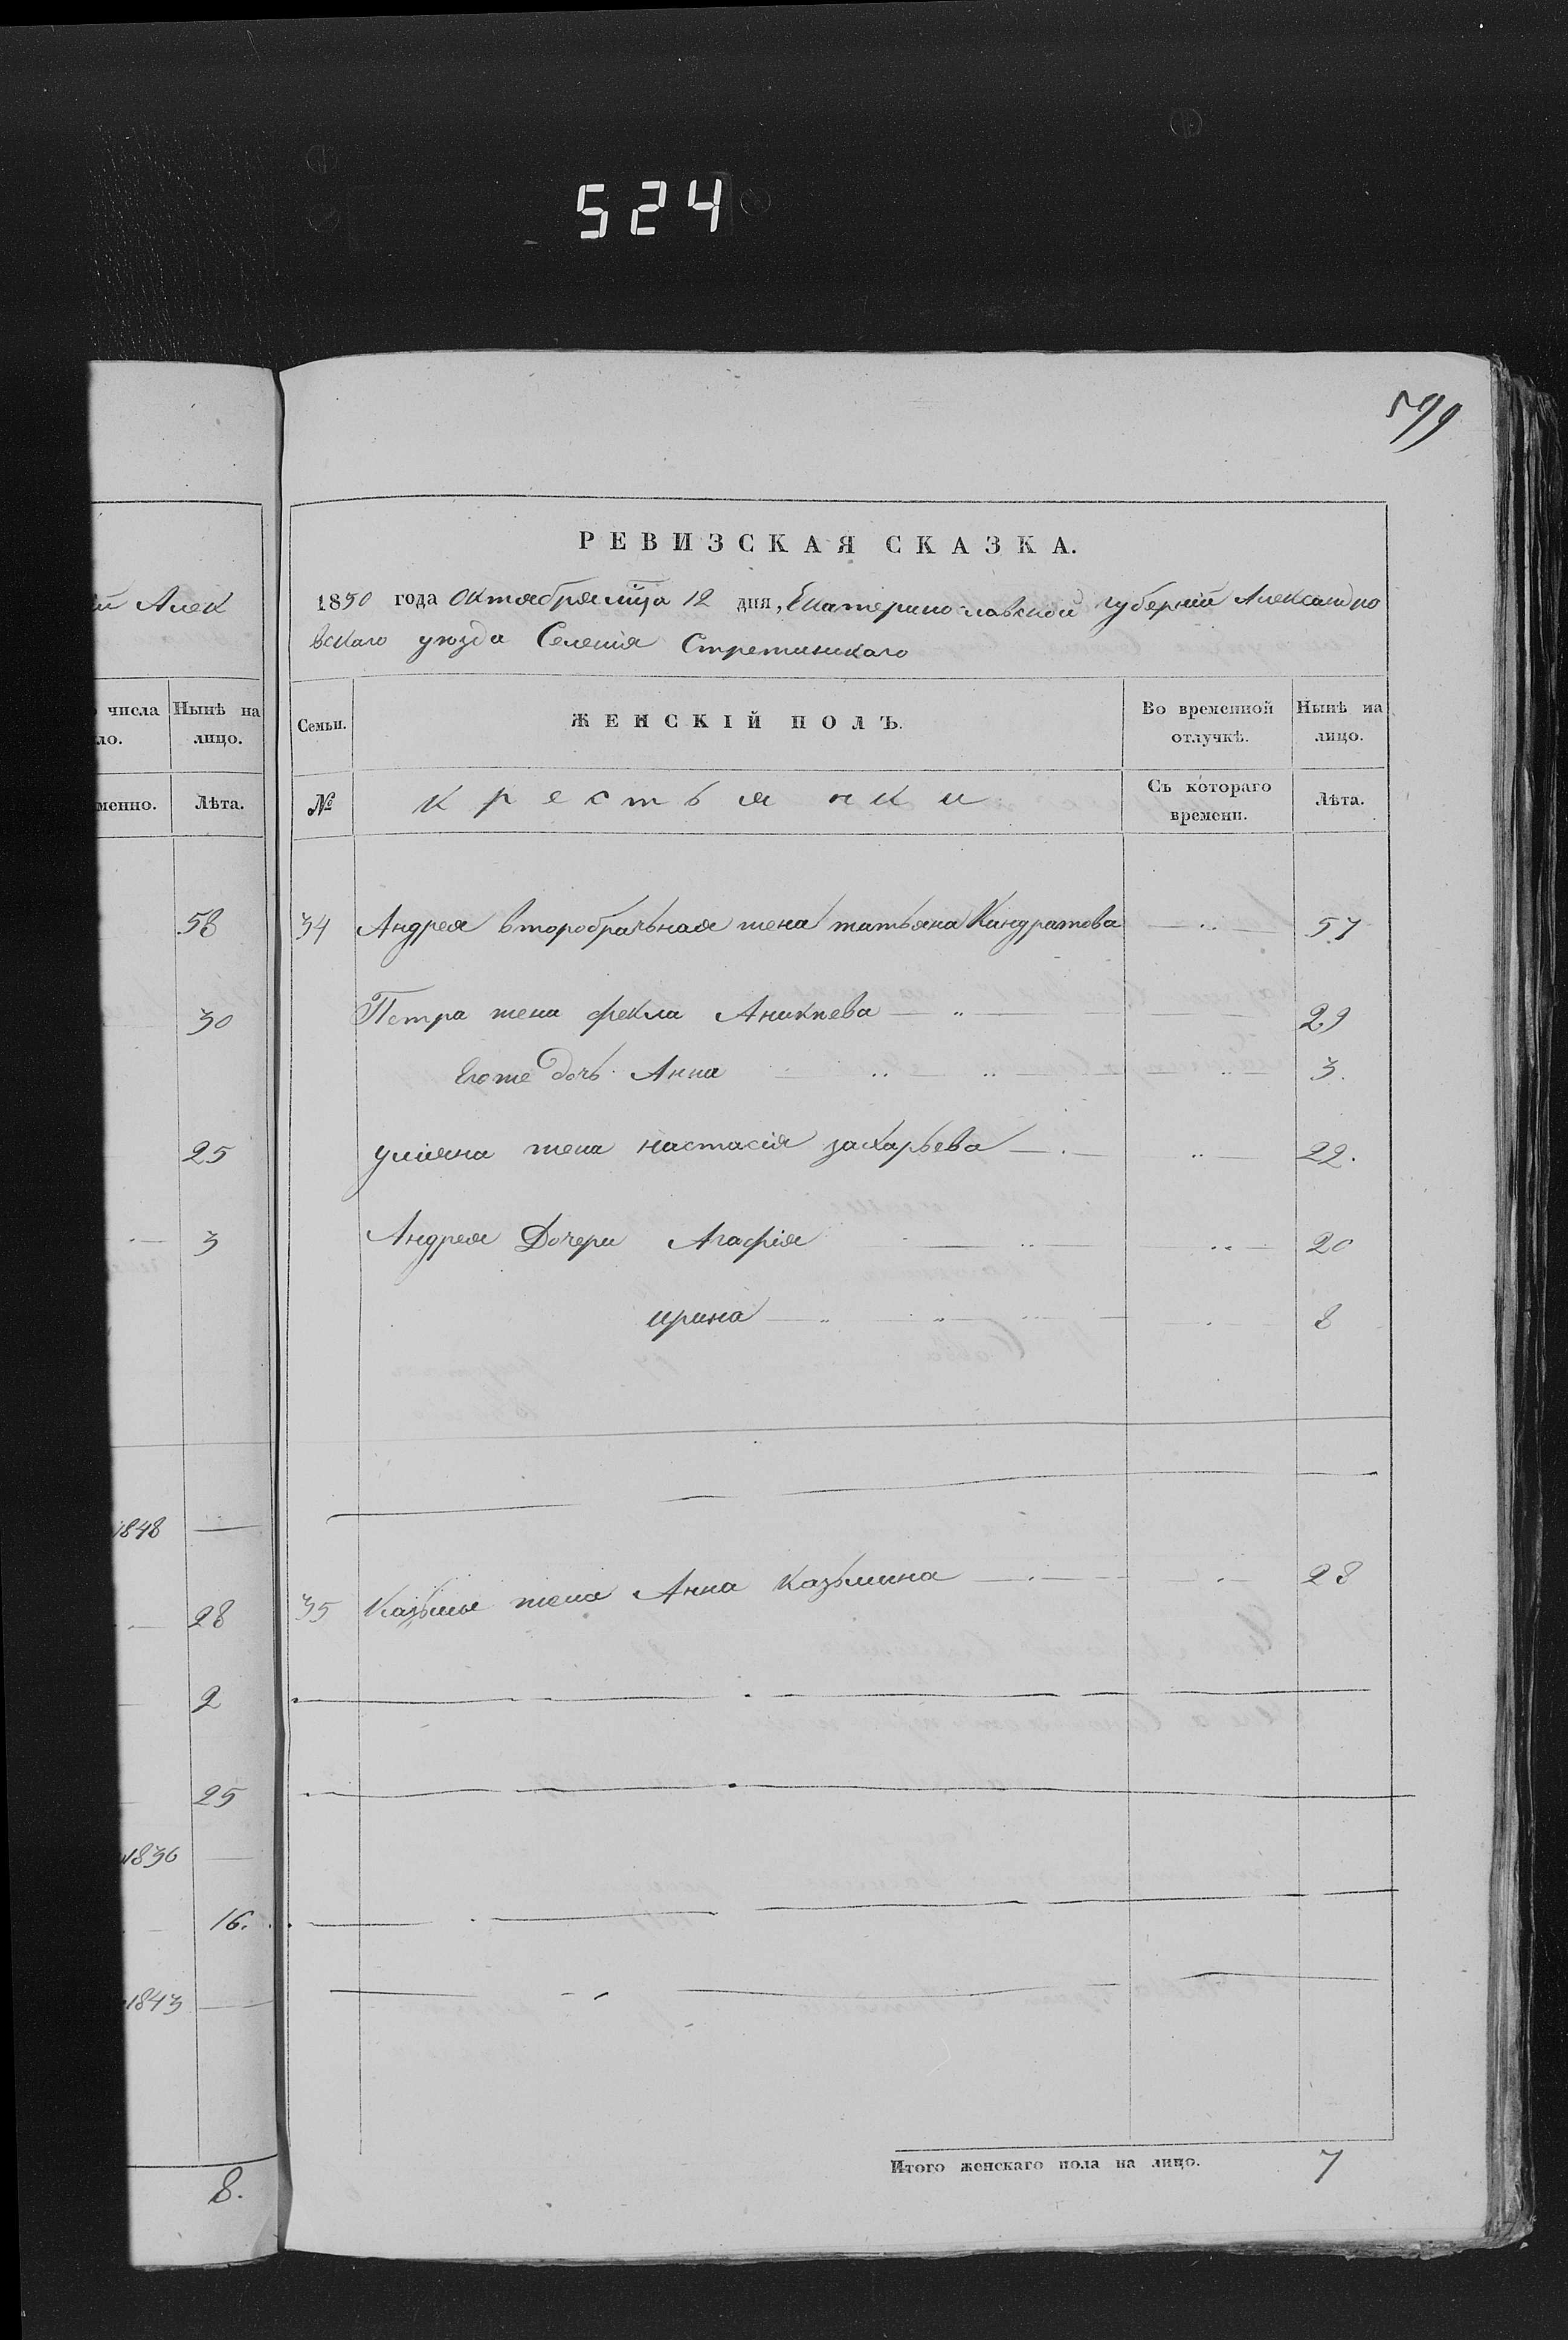 524
599
й Алек
числа Нынѣ на
ло. лицо.
менно. Лѣта.
58
30
25
3
1848
28
2
25
1836
16.
1843
8.
РЕВИЗСКАЯ СКАЗКА.
1850 года Октября мца 12 дня, Екатеринославской губерніи Александро
вскаго уезда Селенія Стретинскаго
Семьи. ЖЕНСКІЙ ПОЛЪ. Во временной Нынѣ на
отлучкѣ. лицо.
№ крестьянки Съ котораго Лѣта.
времени.
34 Андрея второбрачьная жена татьяна Кандратова 57
Петра жена фекла Аникиева 29
Егоже дочь Анна 3.
улияна жена настасія захарьева 22.
Андрея Дочери Агафія 20
ирина 8
35 Казьмы жена Анна Казьмина 28
Итого женскаго пола на лицо. 7